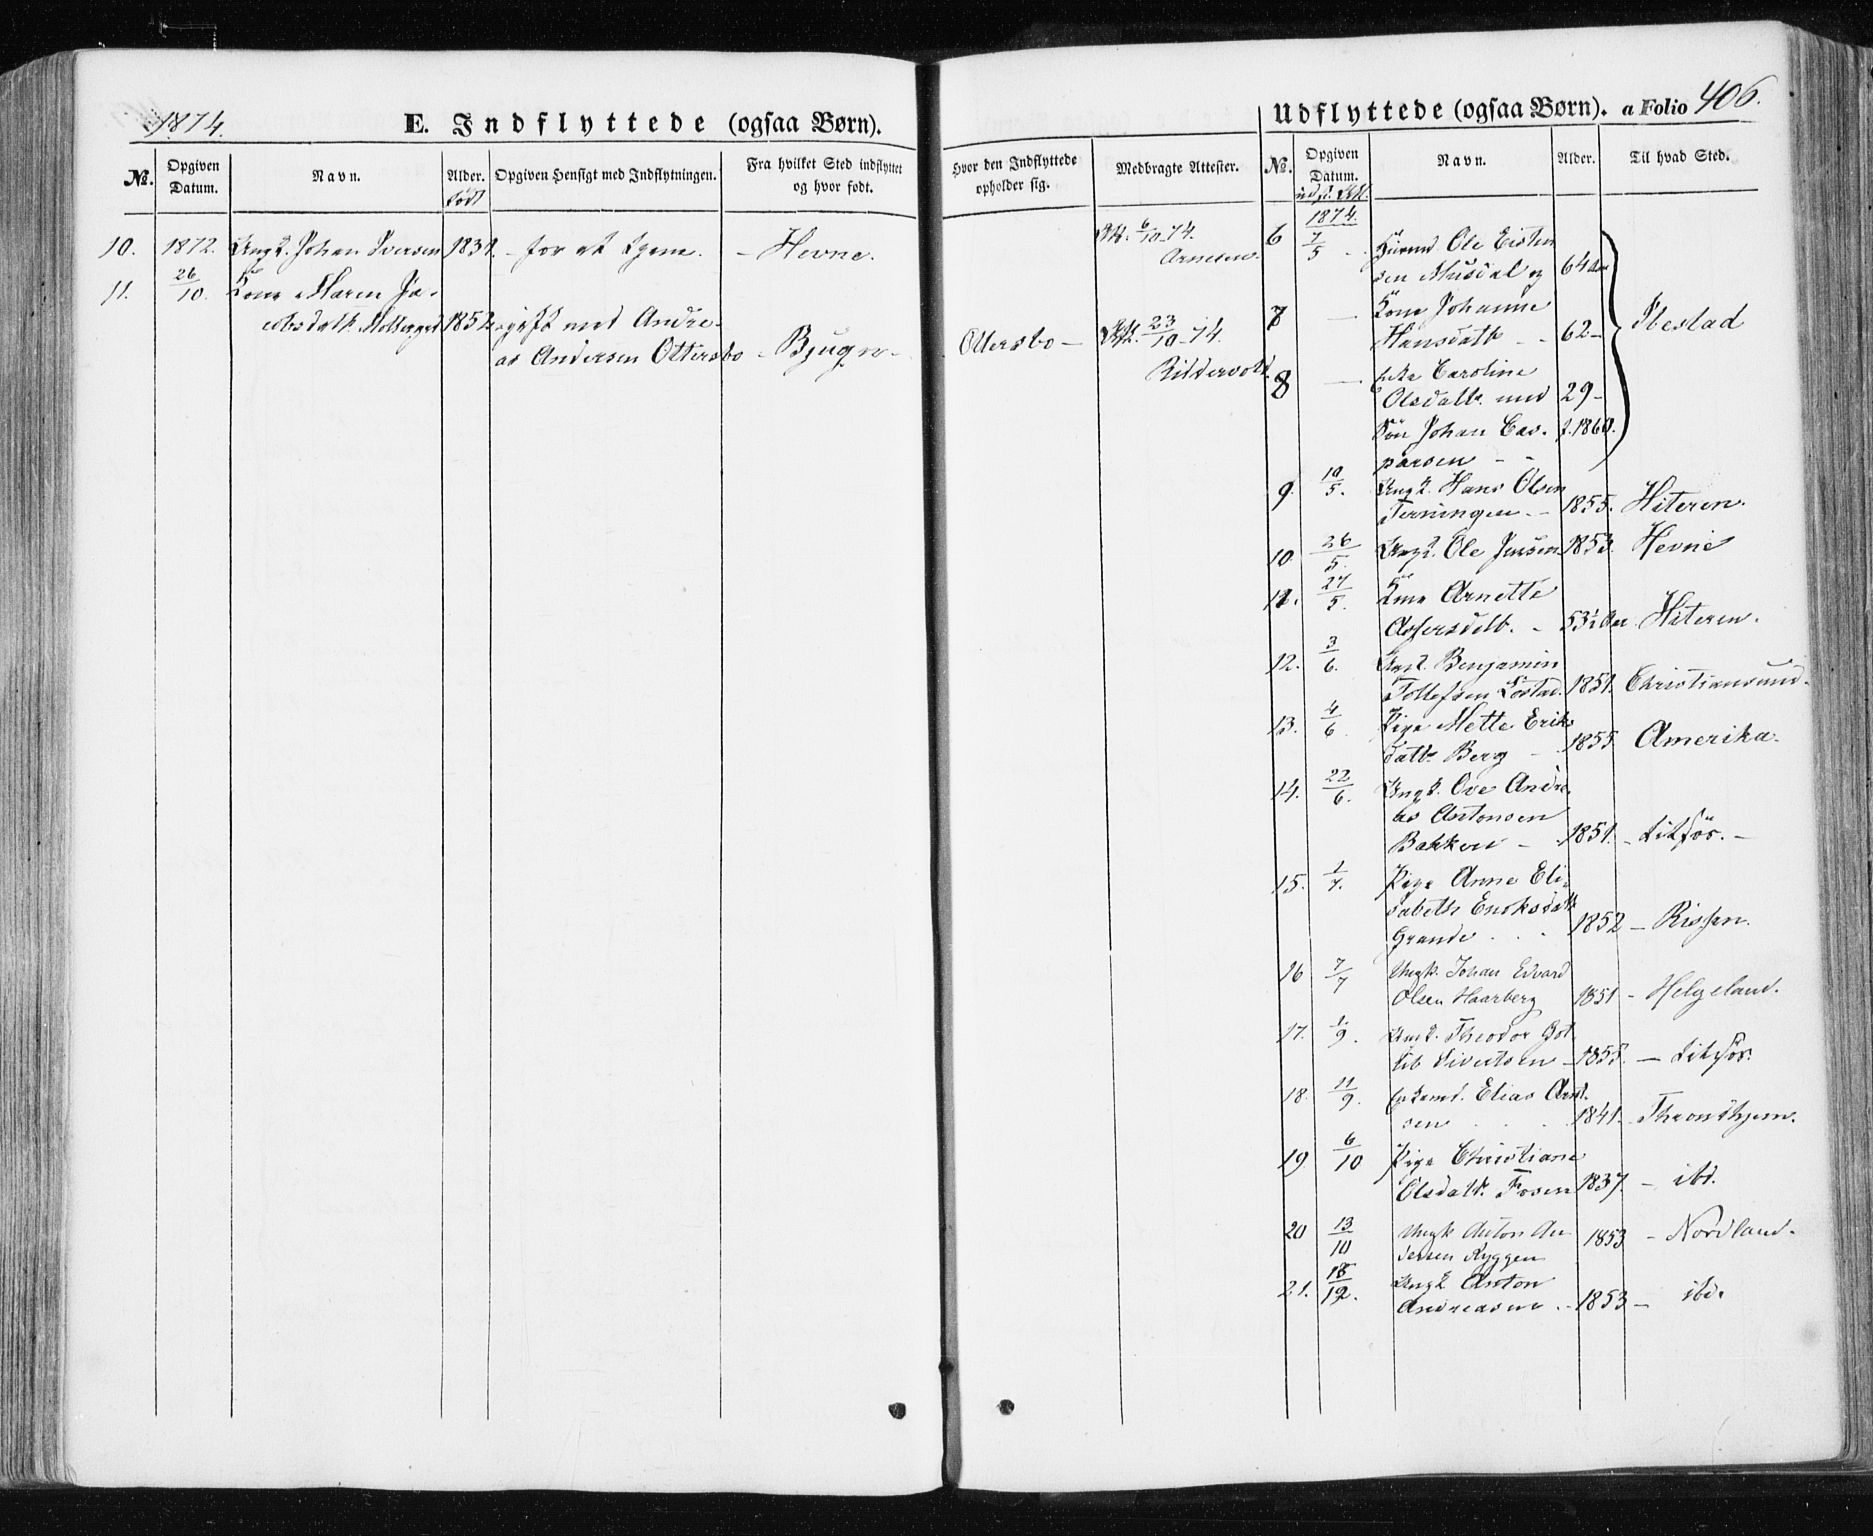 1874.
E. Indflyttede (ogsaa Børn).
No. Opgiven Datum. Navn. Alder. Opgiven Hensigt med Indflytningen. Fra hvilket Sted indflyttet og hvor født.
født
10. 1872. Ungk. Johan Iversen 1831. - for at tjene. - Hevne.
11. 26/10. Kone Maren Ja-
cobsdatt. 1852. gift med Andre-
as Andersen Ottersbo - Bjugn -
Udflyttede (ogsaa Børn). a Folio 406.
Hvor den Indflyttede opholder sig. Medbragte Attester. No. Opgiven Datum. Navn. Alder. Til hvad Sted.
1874.
6/10 74.
Arnesen.
Ottersbo - 23/10 - 74.
Riddervold.
6 7/5 - Huusmd Ole Eisten
sen Musdal og 64 Aar
7 - Kone Johanne
Hansdatt. - - 62 - Ibestad
8 - Caroline
Olsdatt. med 29 -
Søn Johan Cas- f. 1860.
parsen - -
9. 10/5. Ungk. Hans Olsen
Terningen. - 1855. Hiteren.
10. 26/5. Ungk. Ole Jensen 1853. Hevne
11. 27/5. Kone Arnette
Assersdatt. - 53½ Aar. Hiteren.
12. 3/6. Ungk. Benjamin
Tollefsen 1851. Christiansund.
13. 4/6. Pige Mette Eriks
datt. Berg - 1855 Amerika.
14. 22/6. Ungk. Ove Andre-
as Antonsen
Bakken - 1851. -
15. 1/7. Pige Anne Eli-
sabeth Enoksdatt.
Grande . . . 1852 - Rissen.
16 7/7 Ungk. Johan Edvard
Olsen Haarberg 1851 - Helgeland.
17. 1/9. Ungk. Theodor Got-
lib Sivertsen - 1855. -
18. 11/9. Elias Arnt-
sen . . . 1841. Throndhjem.
19 6/10 Pige Christiane
Olsdatt. Fosen 1837. - ibd.
20 13/10 Ungk Anton An-
dersen Ryggen 1853 - Nordland.
21. 18/12. Ungk Anton
Andreasen . - 1853 - ibd.